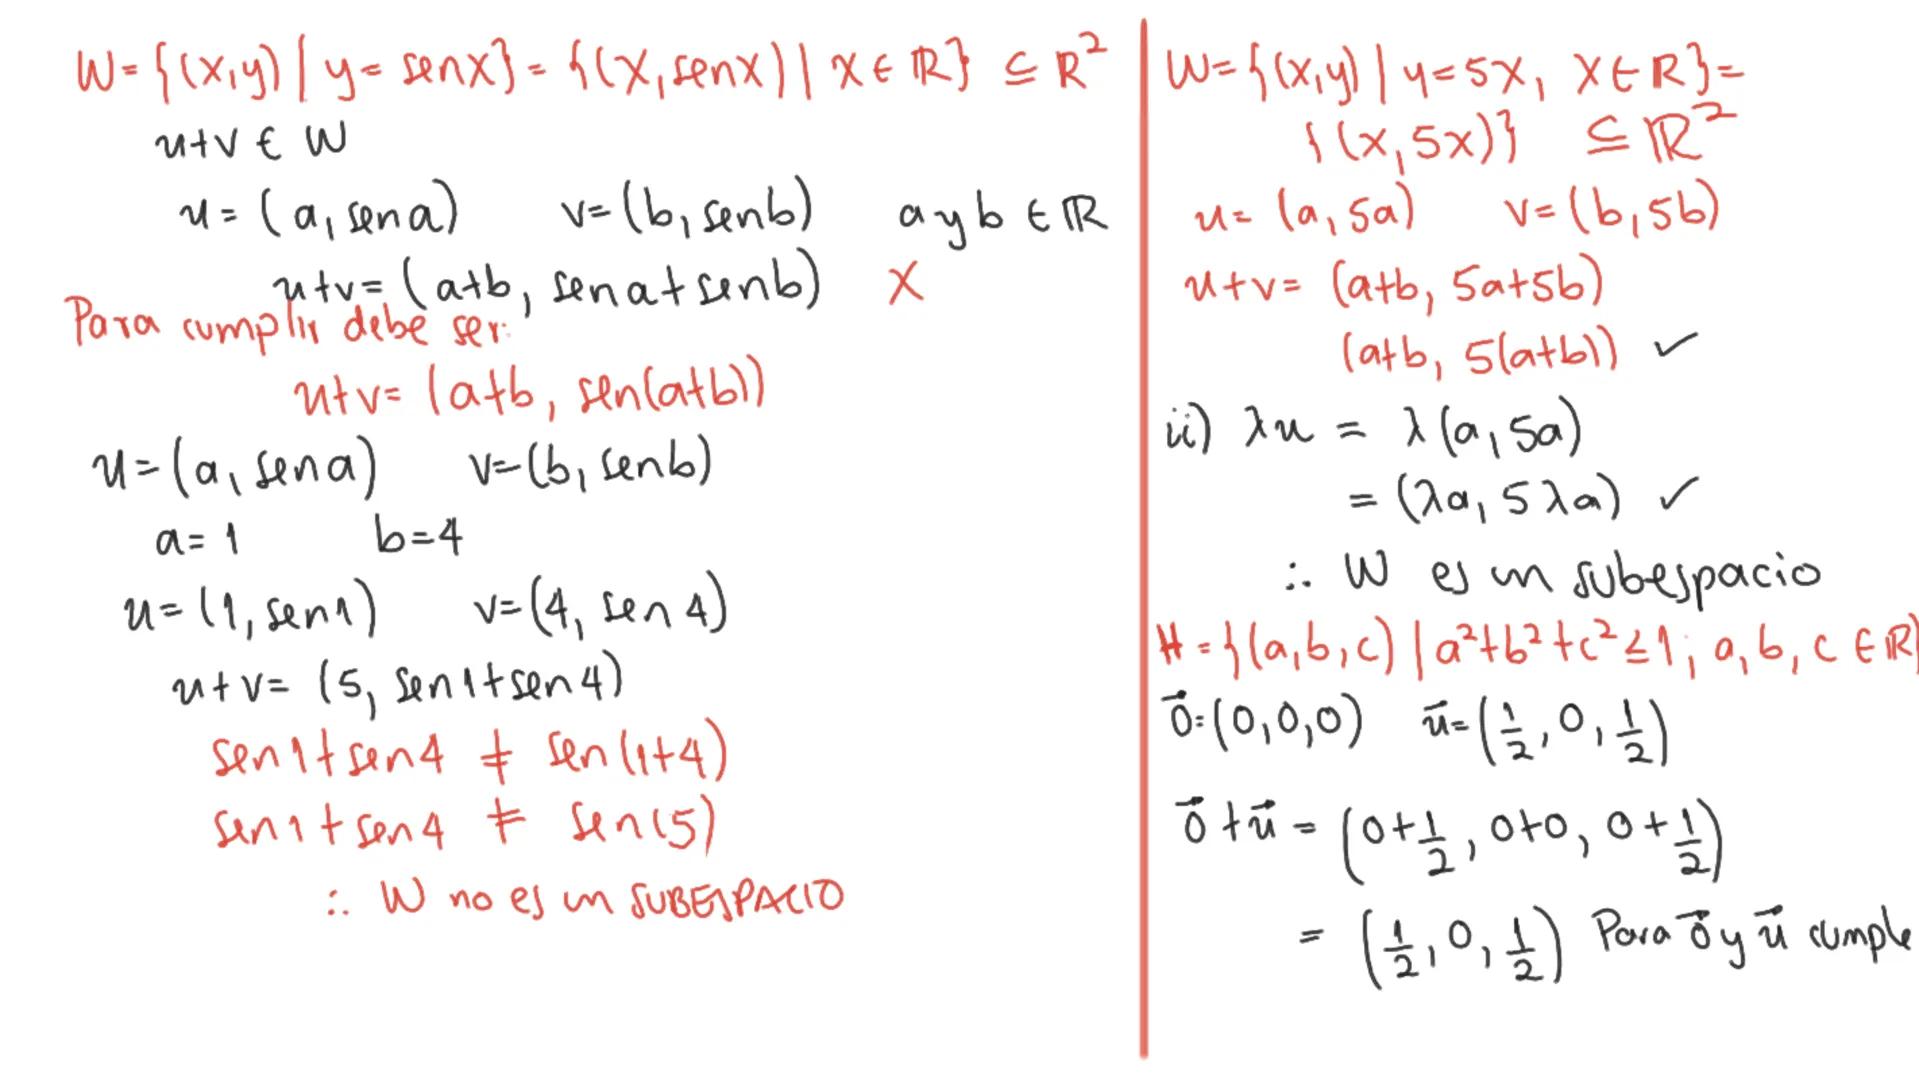 W={(x,y) | y= senx}= {(x, senx) | x ∈ ℝ} ⊆ ℝ²
u+v ∈ W
u = (a, sen a) v= (b, senb) a y b ∈ ℝ
u+v= (a+b, sen a + senb) X
Para cumplir debe ser:
u+v= (a+b, sen(a+b))
u=(a, sen a) v=(b, senb)
a= 1 b=4
u=(1, sen1) v=(4, sen 4)
u+v= (5, sen1+sen4)
sen1+sen4 ≠ sen(1+4)
sen1+sen4 ≠ sen(5)
∴ W no es un SUBESPACIO
W={(x,y) | y=5x, x∈ℝ}=
{(x,5x)} ⊆ ℝ²
u= (a, 5a) v=(b,5b)
u+v= (a+b, 5a+5b)
(a+b, 5(a+b)) ✓
ii) λu = λ(a, 5a)
= (λa, 5λa) ✓
∴ W es un subespacio
H={(a,b,c) | a²+b²+c²≤1; a, b, c ∈ℝ}
0⃗=(0,0,0) u⃗=(1/2, 0, 1/2)
0⃗+u⃗= (0+1/2, 0+0, 0+1/2)
= (1/2, 0, 1/2) Para 0⃗ y u⃗ cumple